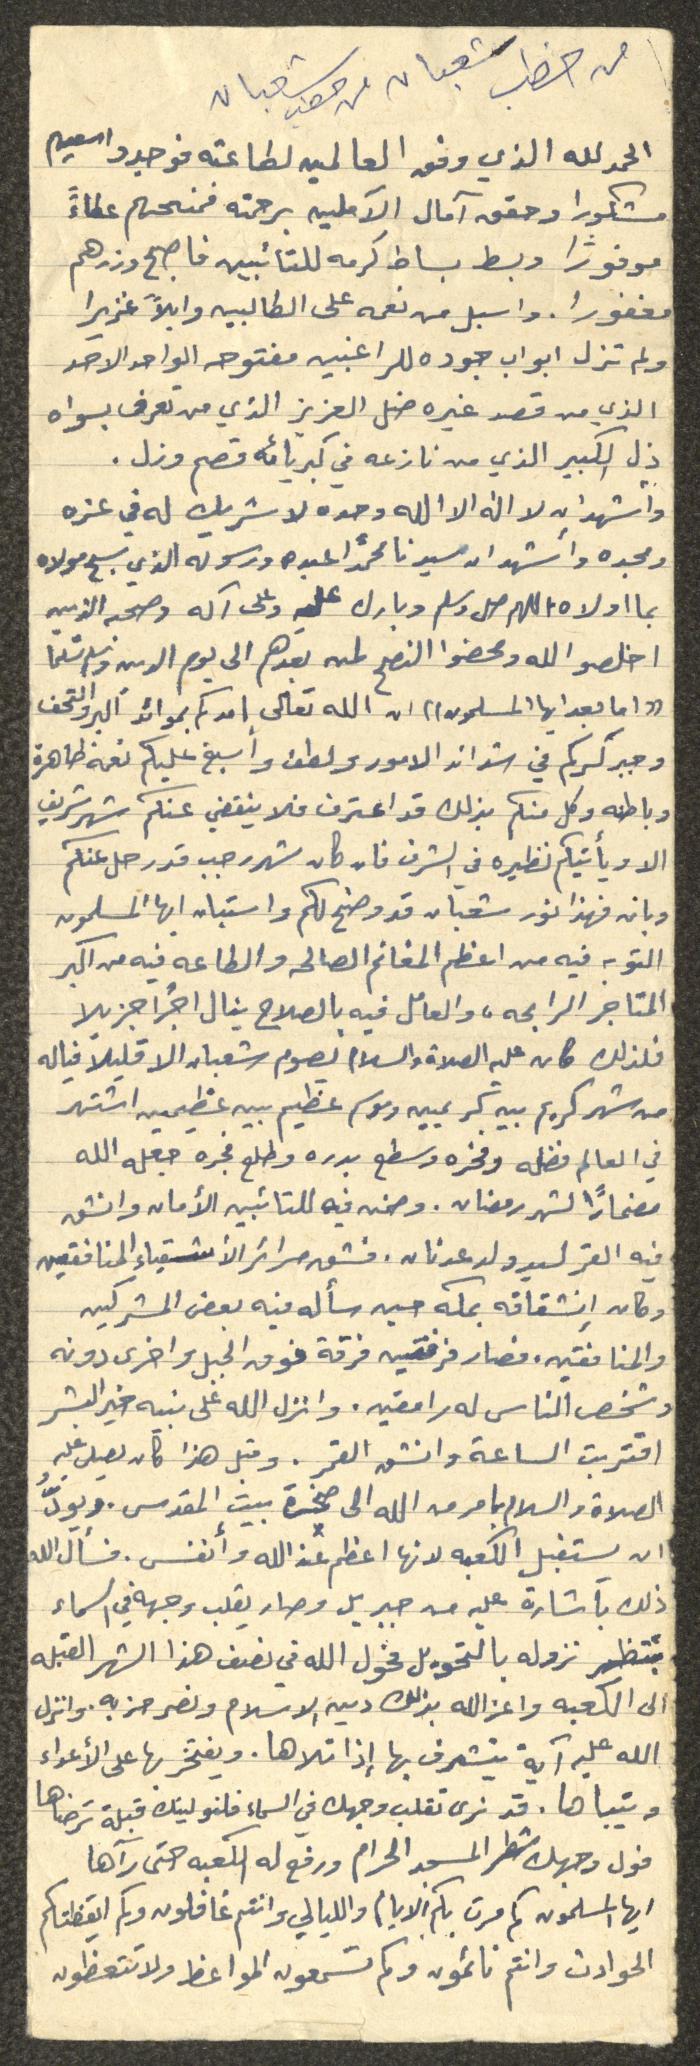 من خطب شعبان من خطب شعبان
الحمد لله الذي وفق العالمين لطاعته فوجدوا سعيهم
مشكورا وحقق آمال الآملين برحمته فمنحهم عطاءً
موفورًا وبسط بساط كرمه للتائبين فاصبح وزرهم
مغفورا . واسبل من نعمه على الطالبين وابلاً غزيرا
ولم تزل ابواب جوده للراغبين مفتوحه الواحد الاحد
الذي من قصد غيره ضل العزيز الذي من تعرف بسواه
ذل الكبير الذي من نازعه في كبريائه قصم وزل .
وأشهد ان لا اله الا الله وحده لا شريك له في عزه
ومجده وأشهد ان سيدنا محمدًا عبده ورسوله الذي مولاه
بما اولاه اللهم صل وسلم وبارك عليه وعلى آله وصحبه الذين
اخلصوا لله ومحضوا النصح لمن بعدهم الى يوم الدين وسلم تسليما
«اما بعد ايها المسلمون» ان الله تعالى امدكم بموائد البر والتحف
وجبر كسركم في شدائد الامور ولطف وأسبغ عليكم نعمة ظاهرة
وباطنه وكل منكم بذلك قد اعترف فلا ينقضي عنكم شهر شريف
الا ويأتيكم نظيره في الشرف فان كان شهر رجب قد رحل عنكم
وبان فهذا نور شعبان قد وضح لكم واستبان ايها المسلمون
التوبه فيه من اعظم المغانم الصالحه والطاعه فيه من اكبر
المتاجر الرابحه ، والعامل فيه بالصلاح ينال اجرًا جزيلا
فلذلك كان عليه الصلاة والسلام يصوم شعبان الا قليلا فياله
من شهر كريم بين كريمين وموسم عظيم بين عظيمين اشتهر
في العالم فضله وفخره وسطع بدره وطلع فجره جعله الله
مضمارًا لشهر رمضان . وضمن فيه للتائبين الأمان وانشق
فيه القمر لسيد ولد عدنان . فشق مرائر الأشقياء المنافقين
وكان إنشقاقه بمكه حين سأله فيه بعض المشركين
والمنافقين . فصار فرقتين فرقة فوق الجبل واخرى دونه
وشخص الناس له رامقين . وانزل الله على نبيه خير البشر
اقتربت الساعة وانشق القمر . وقبل هذا كان يصلي عليه
الصلاة والسلام بامر من الله الى صخرة بيت المقدس . ويودُّ
ان يستقبل الكعبه لانها اعظم عند الله وأنفس . فسأل الله
ذلك بأشارة عليه من جبريل وصار يقلب وجهه في السماء
ينتظر نزوله بالتحويل فحول الله في نصف هذا الشهر القبله
الى الكعبه واعز الله بذلك دين الاسلام ونصر حزبه . وانزل
الله عليه آية يتشرف بها إذا تلاها . ويفتخر بها على الأعداء
ويتباها . قد نرى تقلب وجهك في السماء فلنولينك قبلة ترضاها
فول وجهك شطر المسجد الحرام ورفع له الكعبه حتى رآها
ايها المسلمون كم مرت بكم الايام والليالي وانتم غافلون وكم ايقظتكم
الحوادث وانتم نائمون وكم تسمعون المواعظ ولا تتعظون